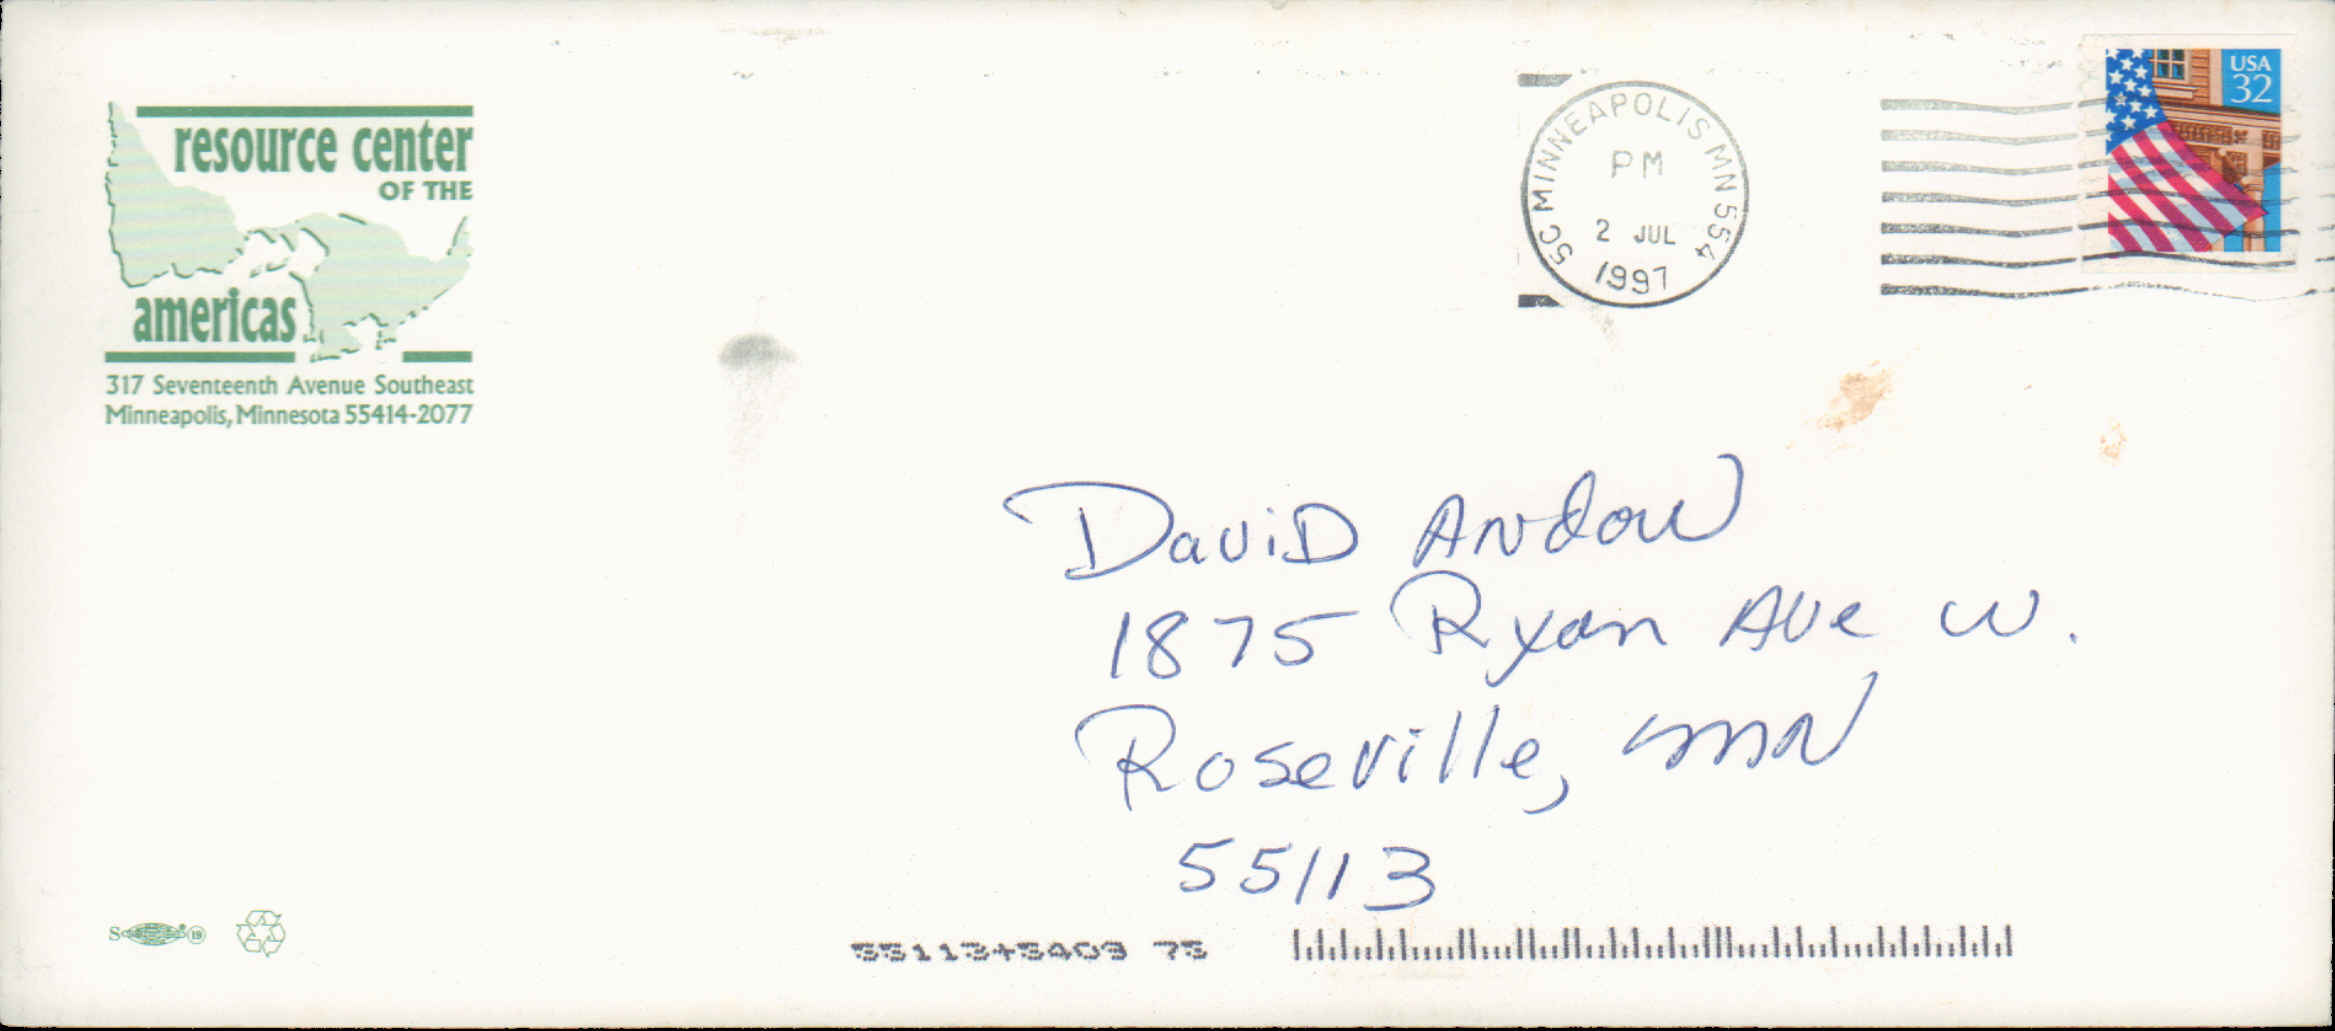 resource center
OF THE
americas
317 Seventeenth Avenue Southeast
Minneapolis, Minnesota 55414-2077
SC MINNEAPOLIS MN 554
PM
2 JUL
1997
USA
32
David Andow
1875 Ryan Ave W.
Roseville, MN
55113
55113+5409 75